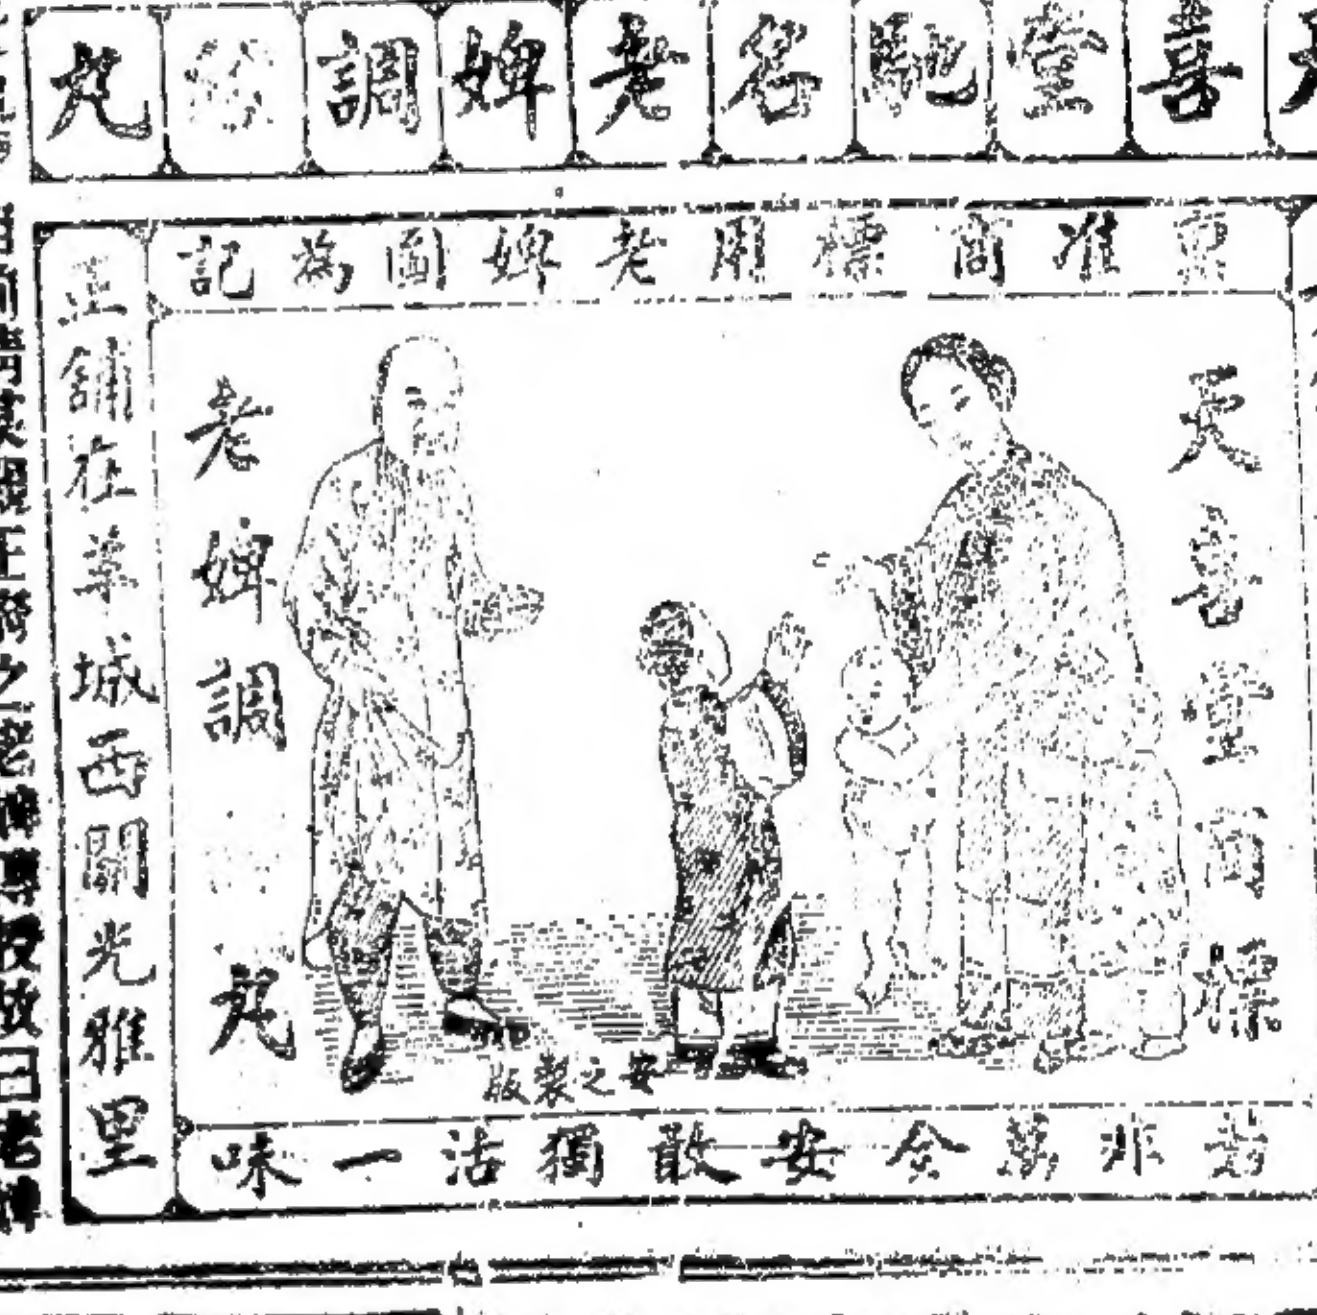 喜堂馳名老婢調經丸
稟准商標用老婢圖為記
天喜堂商標
老婢調 丸
正舖在羊城西關光雅里
安之製版
若非萬全安敢獨沽一味